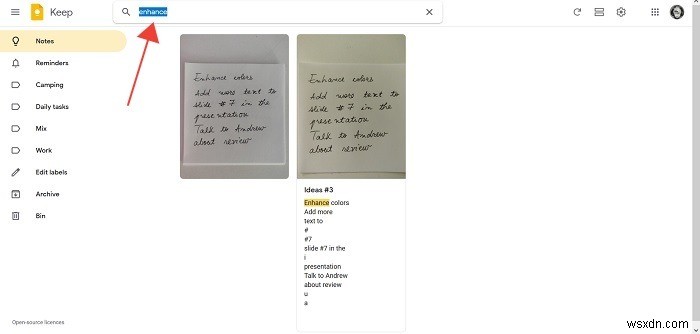 Keep
enhance
Notes
Reminders
Camping
Daily tasks
Mix
Work
Edit labels
Archive
Bin
Open-source licences
Enhance colors
Add more text to
slide # 7 in the
presentation
Talk to Andrew
about review
Enhance colors
Add more text to
slide # 7 in the
presentation
Talk to Andrew
about review
Ideas #3
Enhance colors
Add more
text to
#
#7
slide #7 in the
i
presentation
Talk to Andrew
about review
u
a
wsxdn.com